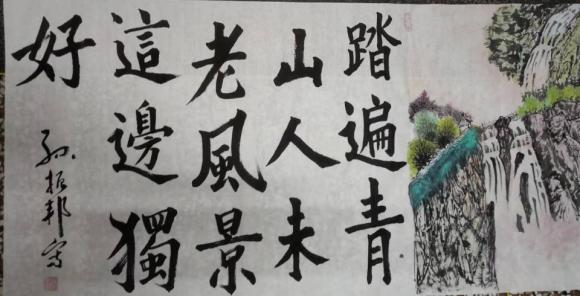 踏遍青
山人未
老風景
這邊獨
好
孙振邦寫